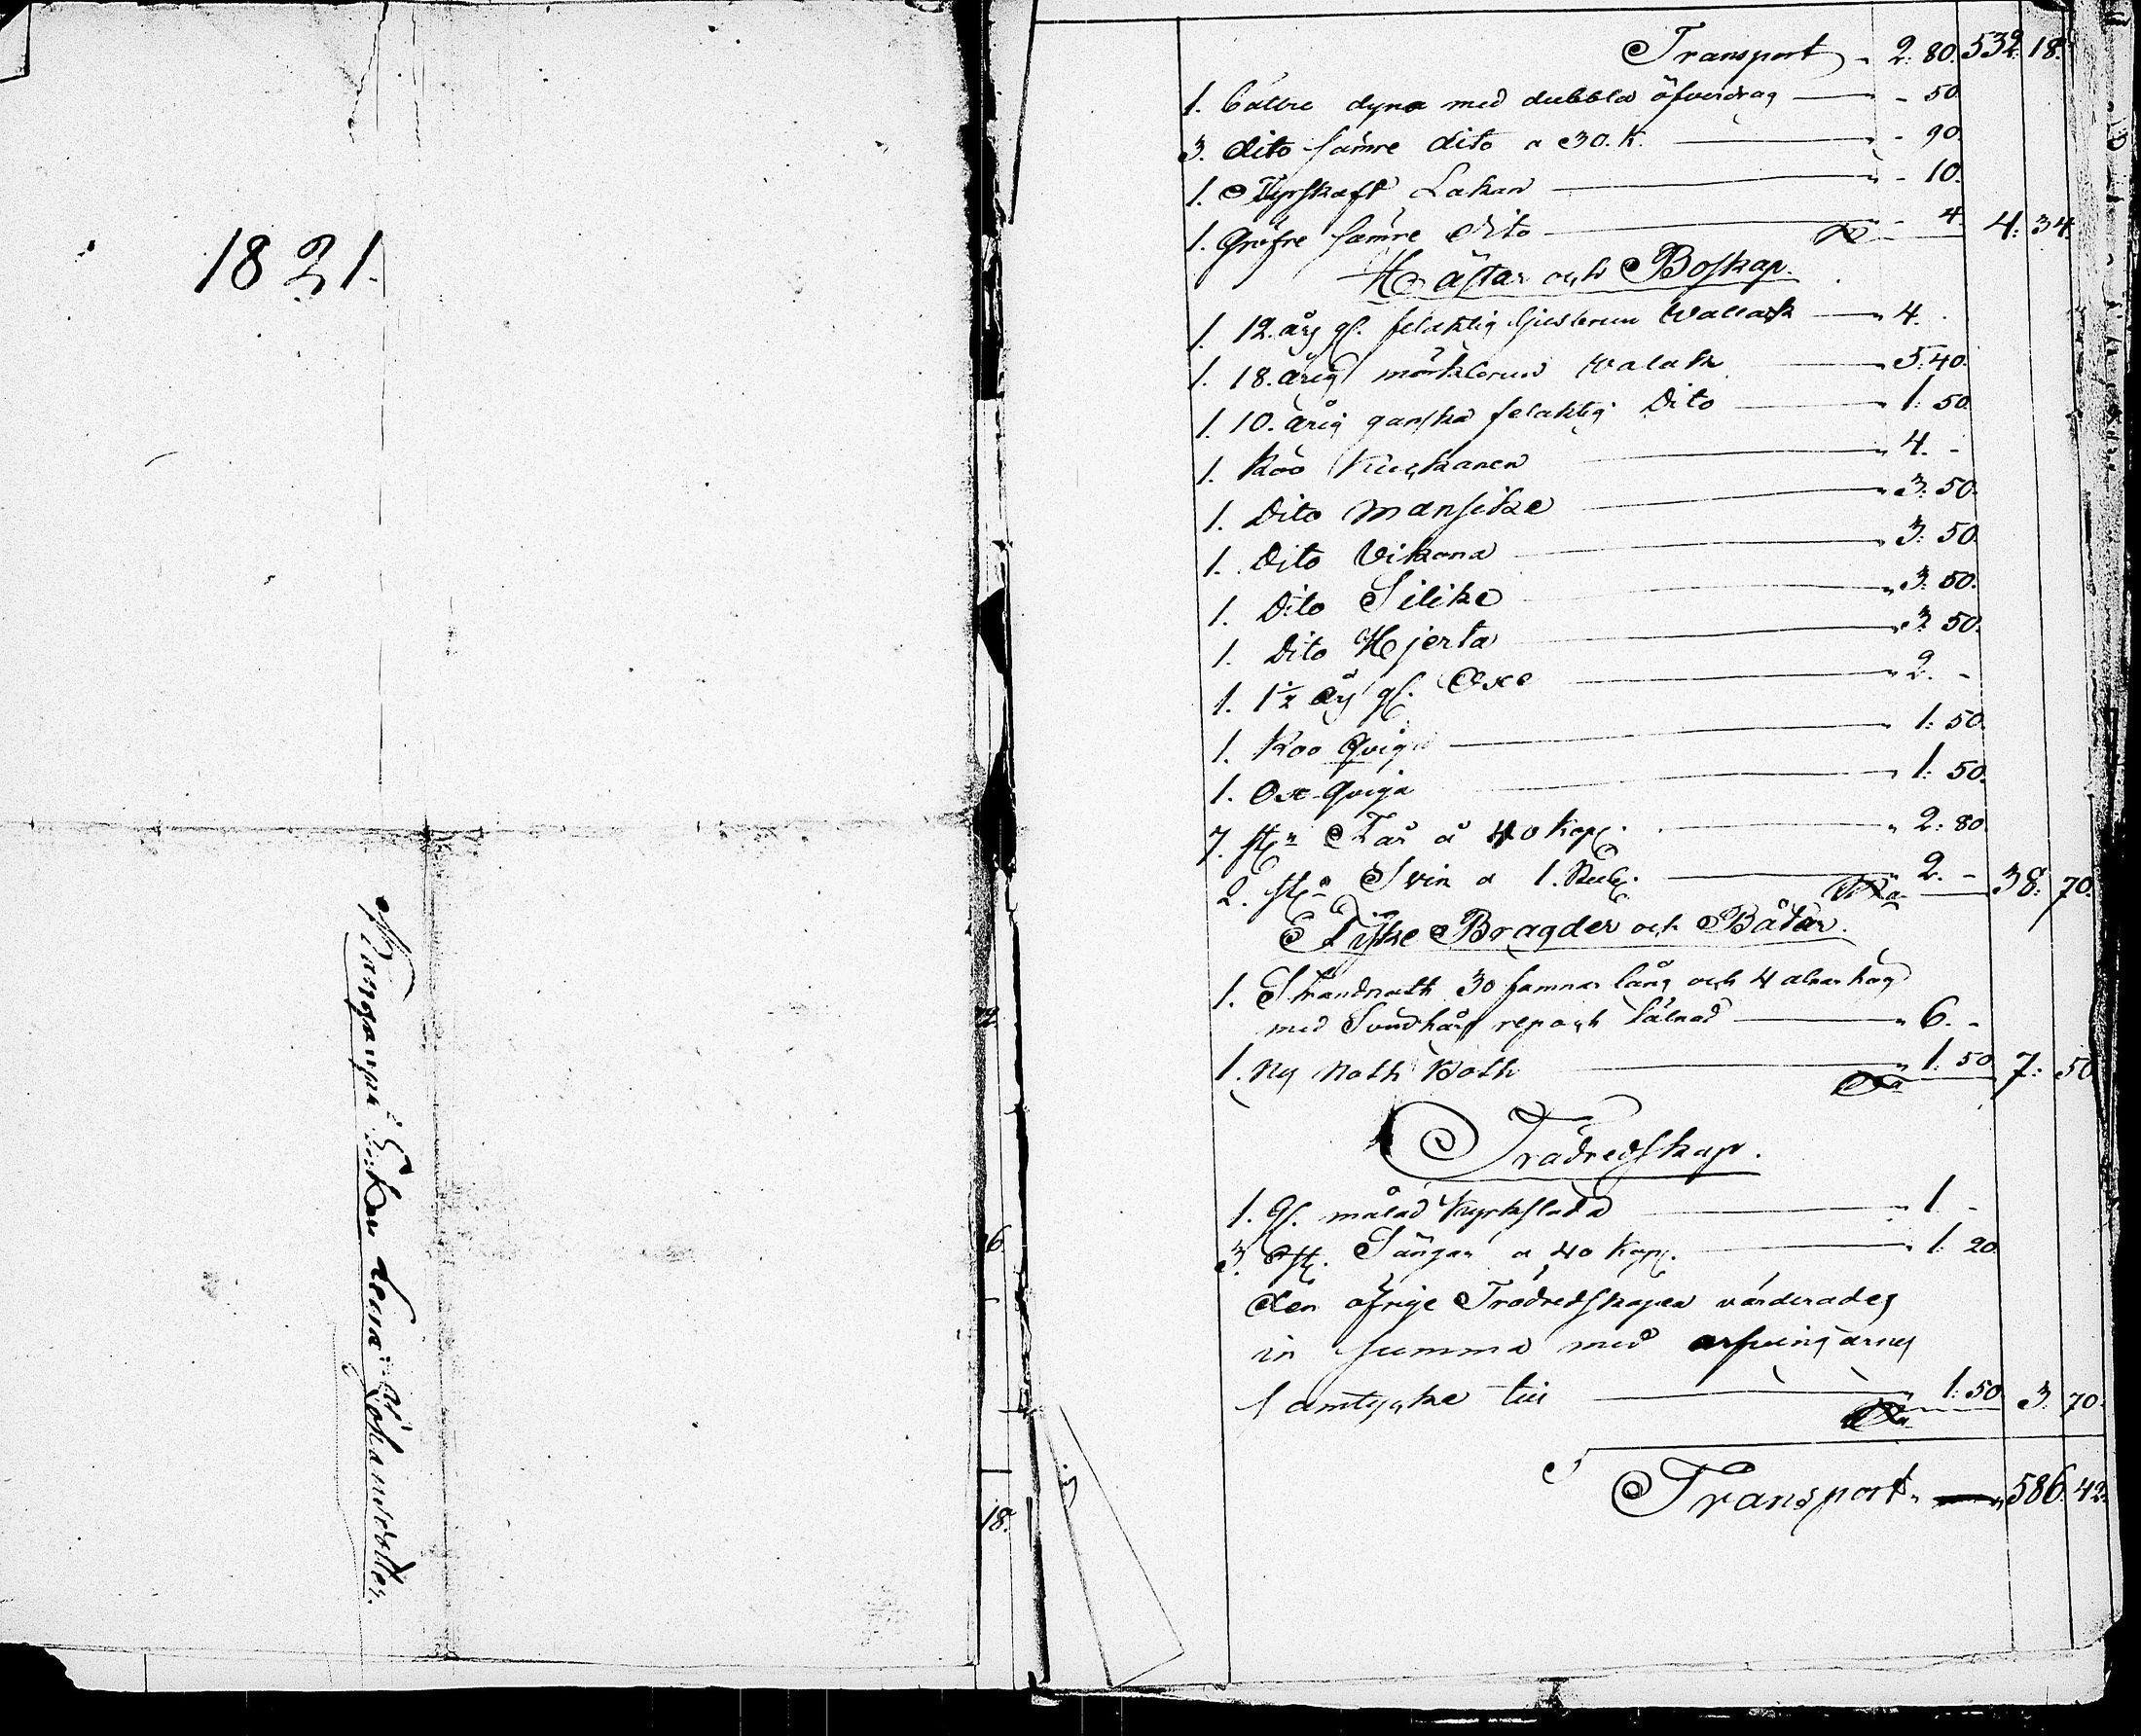 1821.
Enkan Lena Johansdotter.
Transport 2: 80. 532: 18.
1. bättre dyna med dubbla öfverdrag - 50.
3. dito sämre dito a 30. K. - 90.
1. Fyrskaft Lakan - 10.
1. Gröfre sämre dito - 4. 4: 34.
Hästar och Boskap.
1. 12. årg gl. felaktig ljusbrun Wallack 4.
1. 18. årig mörkbrun Walak 5. 40.
1. 10. årig ganska felaktig Dito 1: 50.
1. Koo Kuckanen 4. -
1. Dito Mansike 3: 50.
1. Dito Vikona 3: 50.
1. Dito Silike 3: 50.
1. Dito Hjerta 3: 50.
1. 1½ årg gl. Oxe 2. -
1. Koo Qviga 1: 50.
1. Ox Qviga 1: 50.
7. st: Får a 40 Kop. 2: 80.
2. st: Svin a 1. Rub. 2. - 38: 70.
Fiske Bragder och Båtar.
1. Strandnoth 30 famnar lång och 4 alnar hög
med rep och 6. -
1. Ny Noth Båth 1: 50. 7: 50.
Trädredskap.
1. gl. målad Kyrksläda 1 -
3. st. Sängar a 40 Kop. 1: 20.
den öfrige Trädredskapen värderades
in summa med arfvingarnes
samtycke till 1: 50. 3. 70.
Transport 586. 42.
2.
6.
18.